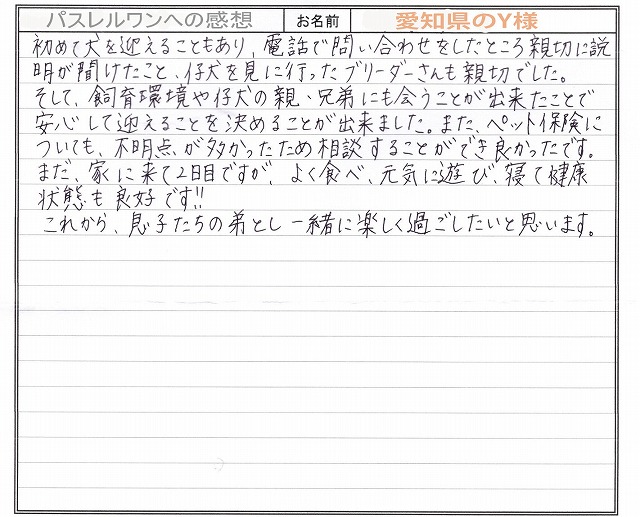 パスレルワンへの感想 お名前 愛知県のY様
初めて犬を迎えることもあり、電話で問い合わせをしたところ親切に説
明が聞けたこと、仔犬を見に行ったブリーダーさんも親切でした。
そして、飼育環境や仔犬の親、兄弟にも会うことが出来たことで
安心して迎えることを決めることが出来ました。また、ペット保険に
ついても、不明点が多かったため相談することができ良かったです。
まだ、家に来て2日目ですが、よく食べ、元気に遊び、寝て健康
状態も良好です!!
これから、息子たちの弟とし一緒に楽しく過ごしたいと思います。